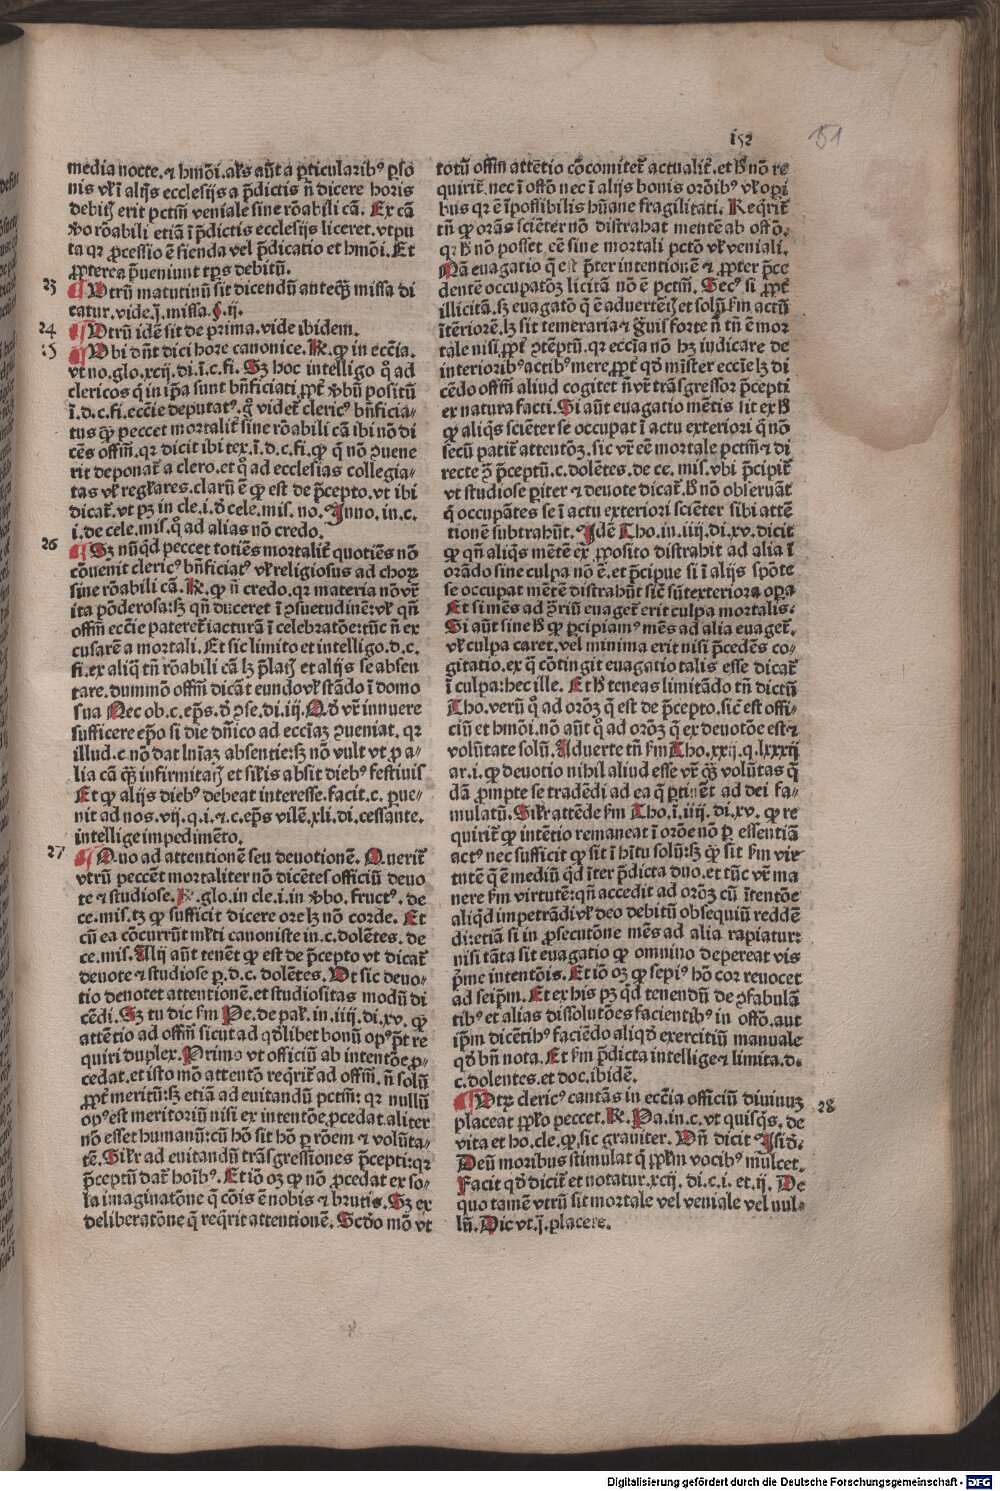 152
151
media nocte. ⁊ hmōi. als aūt a ꝑticularibꝰ ꝑso
nis vl̓ ī alijs ecclesijs a p̄dictis n̄ dicere horis
debit̄ erit pctm̄ veniale sine rōabili cā. Ex cā
ꝟo rōabili etiā ī p̄dictis ecclesijs liceret. vtpu
ta qr ꝓcessio ē fienda vel p̄dicatio et hmōi. Et
ꝓpterea p̄ueniunt tp̄s debitū.
23 Utrū matutinū sit dicendū anteqꝫ missa di
catur. vide. j̄. missa. §. ij.
24 Utrū idē sit de prima. vide ibidem.
25 Ubi dn̄t dici hore canonice. R̄. ꝙ in ecc̄ia.
vt no. glo. xcij. di. ī. c. fi. Sꝫ hoc intelligo qͦ ad
clericos qͥ in ip̄a sunt bn̄ficiati. ꝓpt̓ ꝟbū positū
ī. d. c. fi. ecc̄ie deputatꝰ. gͦ videt̓ clericꝰ bn̄ficia⸗
tus qꝫ peccet mortalit̓ sine rōabili cā ibi nō di
cēs offm̄. qr dicit ibi tex. ī. d. c. fi. ꝙ qͥ nō ꝯuene
rit deponat̓ a clero. et qͦ ad ecclesias collegia⸗
tas vl̓ regl̓ares. clarū ē ꝙ est de p̄cepto. vt ibi
dicat̓. vt pꝫ in cle. i. d̓ cele. mis. no. Inno. in. c.
i. de cele. mis. qͦ ad alias nō credo.
26 Sꝫ nūqd peccet totiēs mortalit̓ quotiēs nō
cōuenit clericꝰ bn̄ficiatꝰ vl̓ religiosus ad choꝝ
sine rōabili cā. R̄. ꝙ n̄ credo. qr materia nō vr̄
ita pōderosa: sꝫ qn̄ duceret ī ꝯsuetudinē: vl̓ qn̄
offm̄ ecc̄ie pateret̓ iacturā ī celebratōe: tūc n̄ ex
cusarē a mortali. Et sic limito et intelligo. d. c.
fi. ex aliq̄ tn̄ rōabili cā lꝫ p̄latis et alijs se absen
tare. dummō offm̄ dicāt eundo vl̓ stādo ī domo
sua Nec ob. c. ep̄s. d̓ ꝯse. di. iij. Qd̓ vr̄ innuere
sufficere ep̄o si die dn̄ico ad ecc̄iaꝫ ꝯueniat. qr
illud. c. nō dat lnīaꝫ absentie: sꝫ nō vult vt ꝓ a⸗
lia cā qꝫ infirmitatis et sil̓is absit diebꝰ festiuis
Et ꝙ alijs diebꝰ debeat interesse. facit. c. ꝑue⸗
nit ad nos. vij. q. i. ⁊. c. ep̄s vilē. xli. di. cessante.
intellige impedimēto.
27 Quo ad attentionē seu deuotionē. Querit̓
vtrū peccēt mortaliter nō dicētes officiū deuo
te ⁊ studiose. R̄. glo. in cle. i. in ꝟbo. fructꝰ. de
ce. mis. tꝫ ꝙ sufficit dicere ore lꝫ nō corde. Et
cū ea cōcurrūt ml̓ti canoniste in. c. dolētes. de
ce. mis. Alij aūt tenēt ꝙ est de p̄cepto vt dicat̓
deuote ⁊ studiose ꝑ. d. c. dolētes. Ut sic deuo⸗
tio denotet attentionē. et studiositas modū di
cēdi. Sꝫ tu dic ẜm Pe. de pal̓. in. iiij. di. xv. ꝙ
attētio ad offm̄ sicut ad qd̓libet bonū opꝰ p̄t re
quiri duplex. Primo vt officiū ab intentōe ꝓ⸗
cedat. et isto mō attentō reqͥrit̓ ad offm̄. n̄ solū
ꝓpt̓ meritū: sꝫ etiā ad euitandū pctm̄: qr nullū
opꝰ est meritoriū nisi ex intentōe ꝓcedat. aliter
nō esset humanū: cū hō sit hō ꝑ rōem ⁊ volūta⸗
tē. Sil̓r ad euitandū trāsgressiones p̄cepti: qr
p̄ceptū dat̓ hoībꝰ. Et iō oꝫ ꝙ nō ꝓcedat ex so⸗
la imaginatōne q̄ cōis ē nobis ⁊ brutis. Sꝫ ex
deliberatōne q̄ reqͥrit attentionē. Scd̓o mō vt
totū offm̄ attētio cōcomitet̓ actualit̓. et h̓ nō re
quirit̓. nec ī offō nec ī alijs bonis orōibꝰ vl̓ oꝑi
bus qr ē īpossibilis hūane fragilitati. Reqͥrit̓
tn̄ ꝙ orās sciēter nō distrahat mentē ab offō.
qr h̓ nō posset cē sine mortali pctō vl̓ veniali.
Nā euagatio q̄ est p̄ter intentionē ⁊ ꝓpter p̄ce
dentē occupatōꝫ licitā nō ē pctm̄. Secꝰ si ꝓpt̓
illicitā. sꝫ euagatō q̄ ē aduertētis̄ et solū ẜm actū
īteriorē. lꝫ sit temeraria ⁊ gͣuis forte n̄ tn̄ ē mor
tale nisi. ꝓpt̓ ꝯtēptū. qr ecc̄ia nō hꝫ iudicare de
interioribꝰ actibꝰ mere. ꝓpt̓ qd̓ mīster ecc̄ie lꝫ di
cēdo offm̄ aliud cogitet n̄ vr̄ trāsgressor p̄cepti
ex natura facti. Si aūt euagatio mētis sit ex h̓
ꝙ aliqͥs sciēter se occupat ī actu exteriori qͥ nō
secū patit̓ attentōꝫ. sic vr̄ eē mortale pctm̄ ⁊ di
recte ꝯͣ p̄ceptū. c. dolētes. de ce. mis. vbi p̄cipit̓
vt studiose ꝑiter ⁊ deuote dicat̓. h̓ nō obseruāt
qͥ occupātes se ī actu exteriori sciēter sibi attē
tionē subtrahūt. Idē Tho. in. iiij. di. xv. dicit
ꝙ qn̄ aliqͥs mētē ex ꝓposito distrahit ad alia ī
orādo sine culpa nō ē. et p̄cipue si ī alijs spōte
se occupat mētē distrahūt sicꝰ sūt exteriora oꝑa
Et si mēs ad ꝯͣriū euaget̓ erit culpa mortalis.
Si aūt sine h̓ ꝙ ꝑcipiamꝰ mēs ad alia euaget̓.
vl̓ culpa caret. vel minima erit nisi p̄cedēs co⸗
gitatio. ex qͣ cōtingit euagatio talis esse dicat̓
ī culpa: hec ille. Et h̓ teneas limitādo tn̄ dictū
Tho. verū qͦ ad orōꝫ q̄ est de p̄cepto. sicꝰ est offi⸗
ciū et hmōi. nō aūt qͦ ad orōꝫ q̄ ex deuotōe est ⁊
volūtate solū. Aduerte tn̄ ẜm Tho. xxij. q. lxxxij
ar. i. ꝙ deuotio nihil aliud esse vr̄ qꝫ volūtas q̄
dā ꝓmpte se tradēdi ad ea q̄ ꝑtinēt ad dei fa⸗
mulatū. Sil̓r attēde ẜm Tho. ī. iiij. di. xv. ꝙ re
quirit̓ ꝙ intētio remaneat ī orōe nō ꝑ essentiā
actꝰ nec sufficit ꝙ sit ī hītu solū: sꝫ ꝙ sit ẜm vir
tutē q̄ ē mediū qd̓ īter p̄dicta duo. et tūc vr̄ ma
nere ẜm virtutē: qn̄ accedit ad orōꝫ cū ītentōe
aliqd̓ impetrādi vl̓ deo debitū obsequiū reddē
di: etiā si in ꝓsecutōne mēs ad alia rapiatur:
nisi tāta sit euagatio ꝙ omnino depereat vis
p̄me intentōis. Et iō oꝫ ꝙ sepiꝰ hō cor reuocet
ad seip̄m. Et ex his pꝫ qͥd tenendū de ꝯfabulā
tibꝰ et alias dissolutōes facientibꝰ in offō. aut
ip̄m dicētibꝰ faciēdo aliqd̓ exercitiū manuale
qd̓ bn̄ nota. Et ẜm p̄dicta intellige ⁊ limita. d.
c. dolentes. et doc. ibidē.
28 Utꝝ clericꝰ cantās in ecc̄ia officiū diuinuꝫ
placeat ppl̓o peccet. R̄. Pa. in. c. vt quisqͣs. de
vita et ho. cle. ꝙ sic grauiter. Un̄ dicit Isid̓.
Deū moribus stimulat qͥ ppl̓m vocibꝰ mulcet.
Facit qd̓ dicit̓ et notatur. xcij. di. c. i. et. ij. De
quo tamē vtrū sit mortale vel veniale vel nul⸗
lū. Dic vt. j̄. placere.
Digitalisierung gefördert durch die Deutsche Forschungsgemeinschaft - DFG